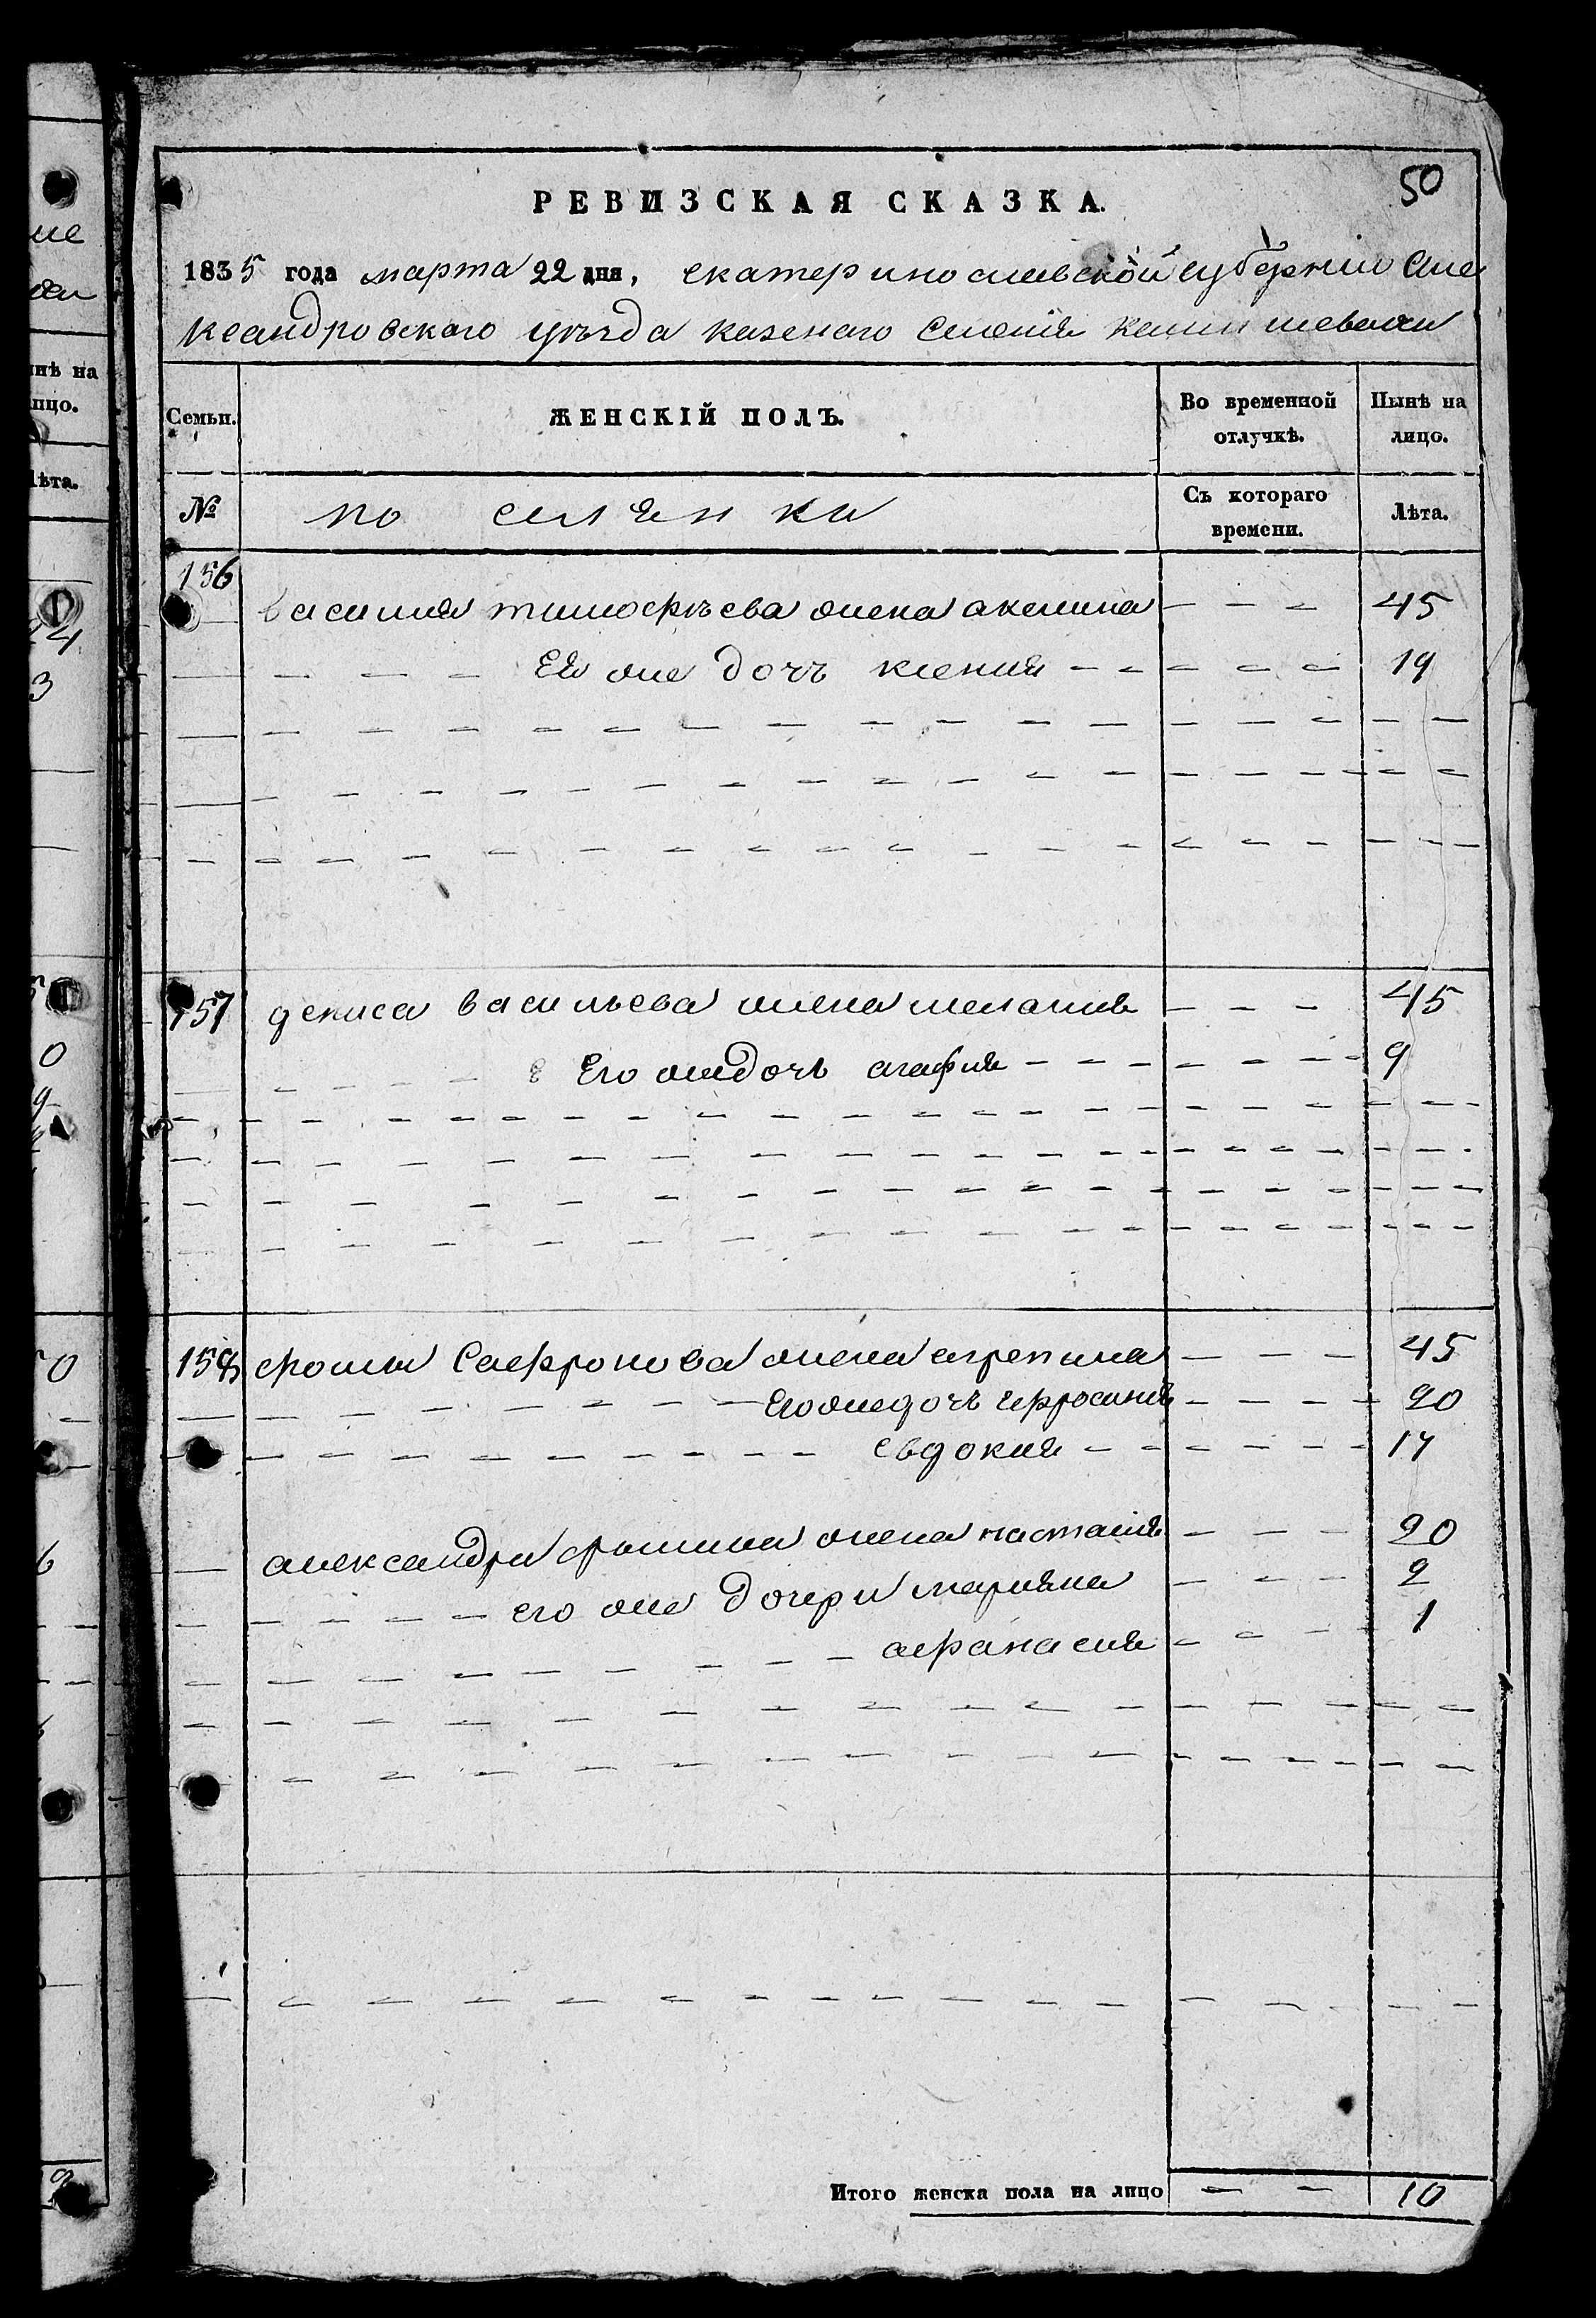 50
РЕВИЗСКАЯ СКАЗКА.
1835 года марта 22 дня, екатеринославской губерніи Але
ксандровского уѣзда казенаго Селенія
Семьи. ЖЕНСКІЙ ПОЛЪ. Во временной отлучкѣ. Нынѣ на лицо.
№ поселянки Съ котораго времени. Лѣта.
156
василия тимофѣева жена акелина 45
Ея же дочъ ксения 19
157 дениса васильева жена мелания 45
Его жедочь агафия 9
158 фомы Сафронова жена агрепина 45
Егожедочъ ефросиния 20
евдокия 17
александра фомина жена настасия 20
его же дочери марияна 2
афанасия 1
Итого женска пола на лицо 10
нѣ на
лицо.
Лѣта.